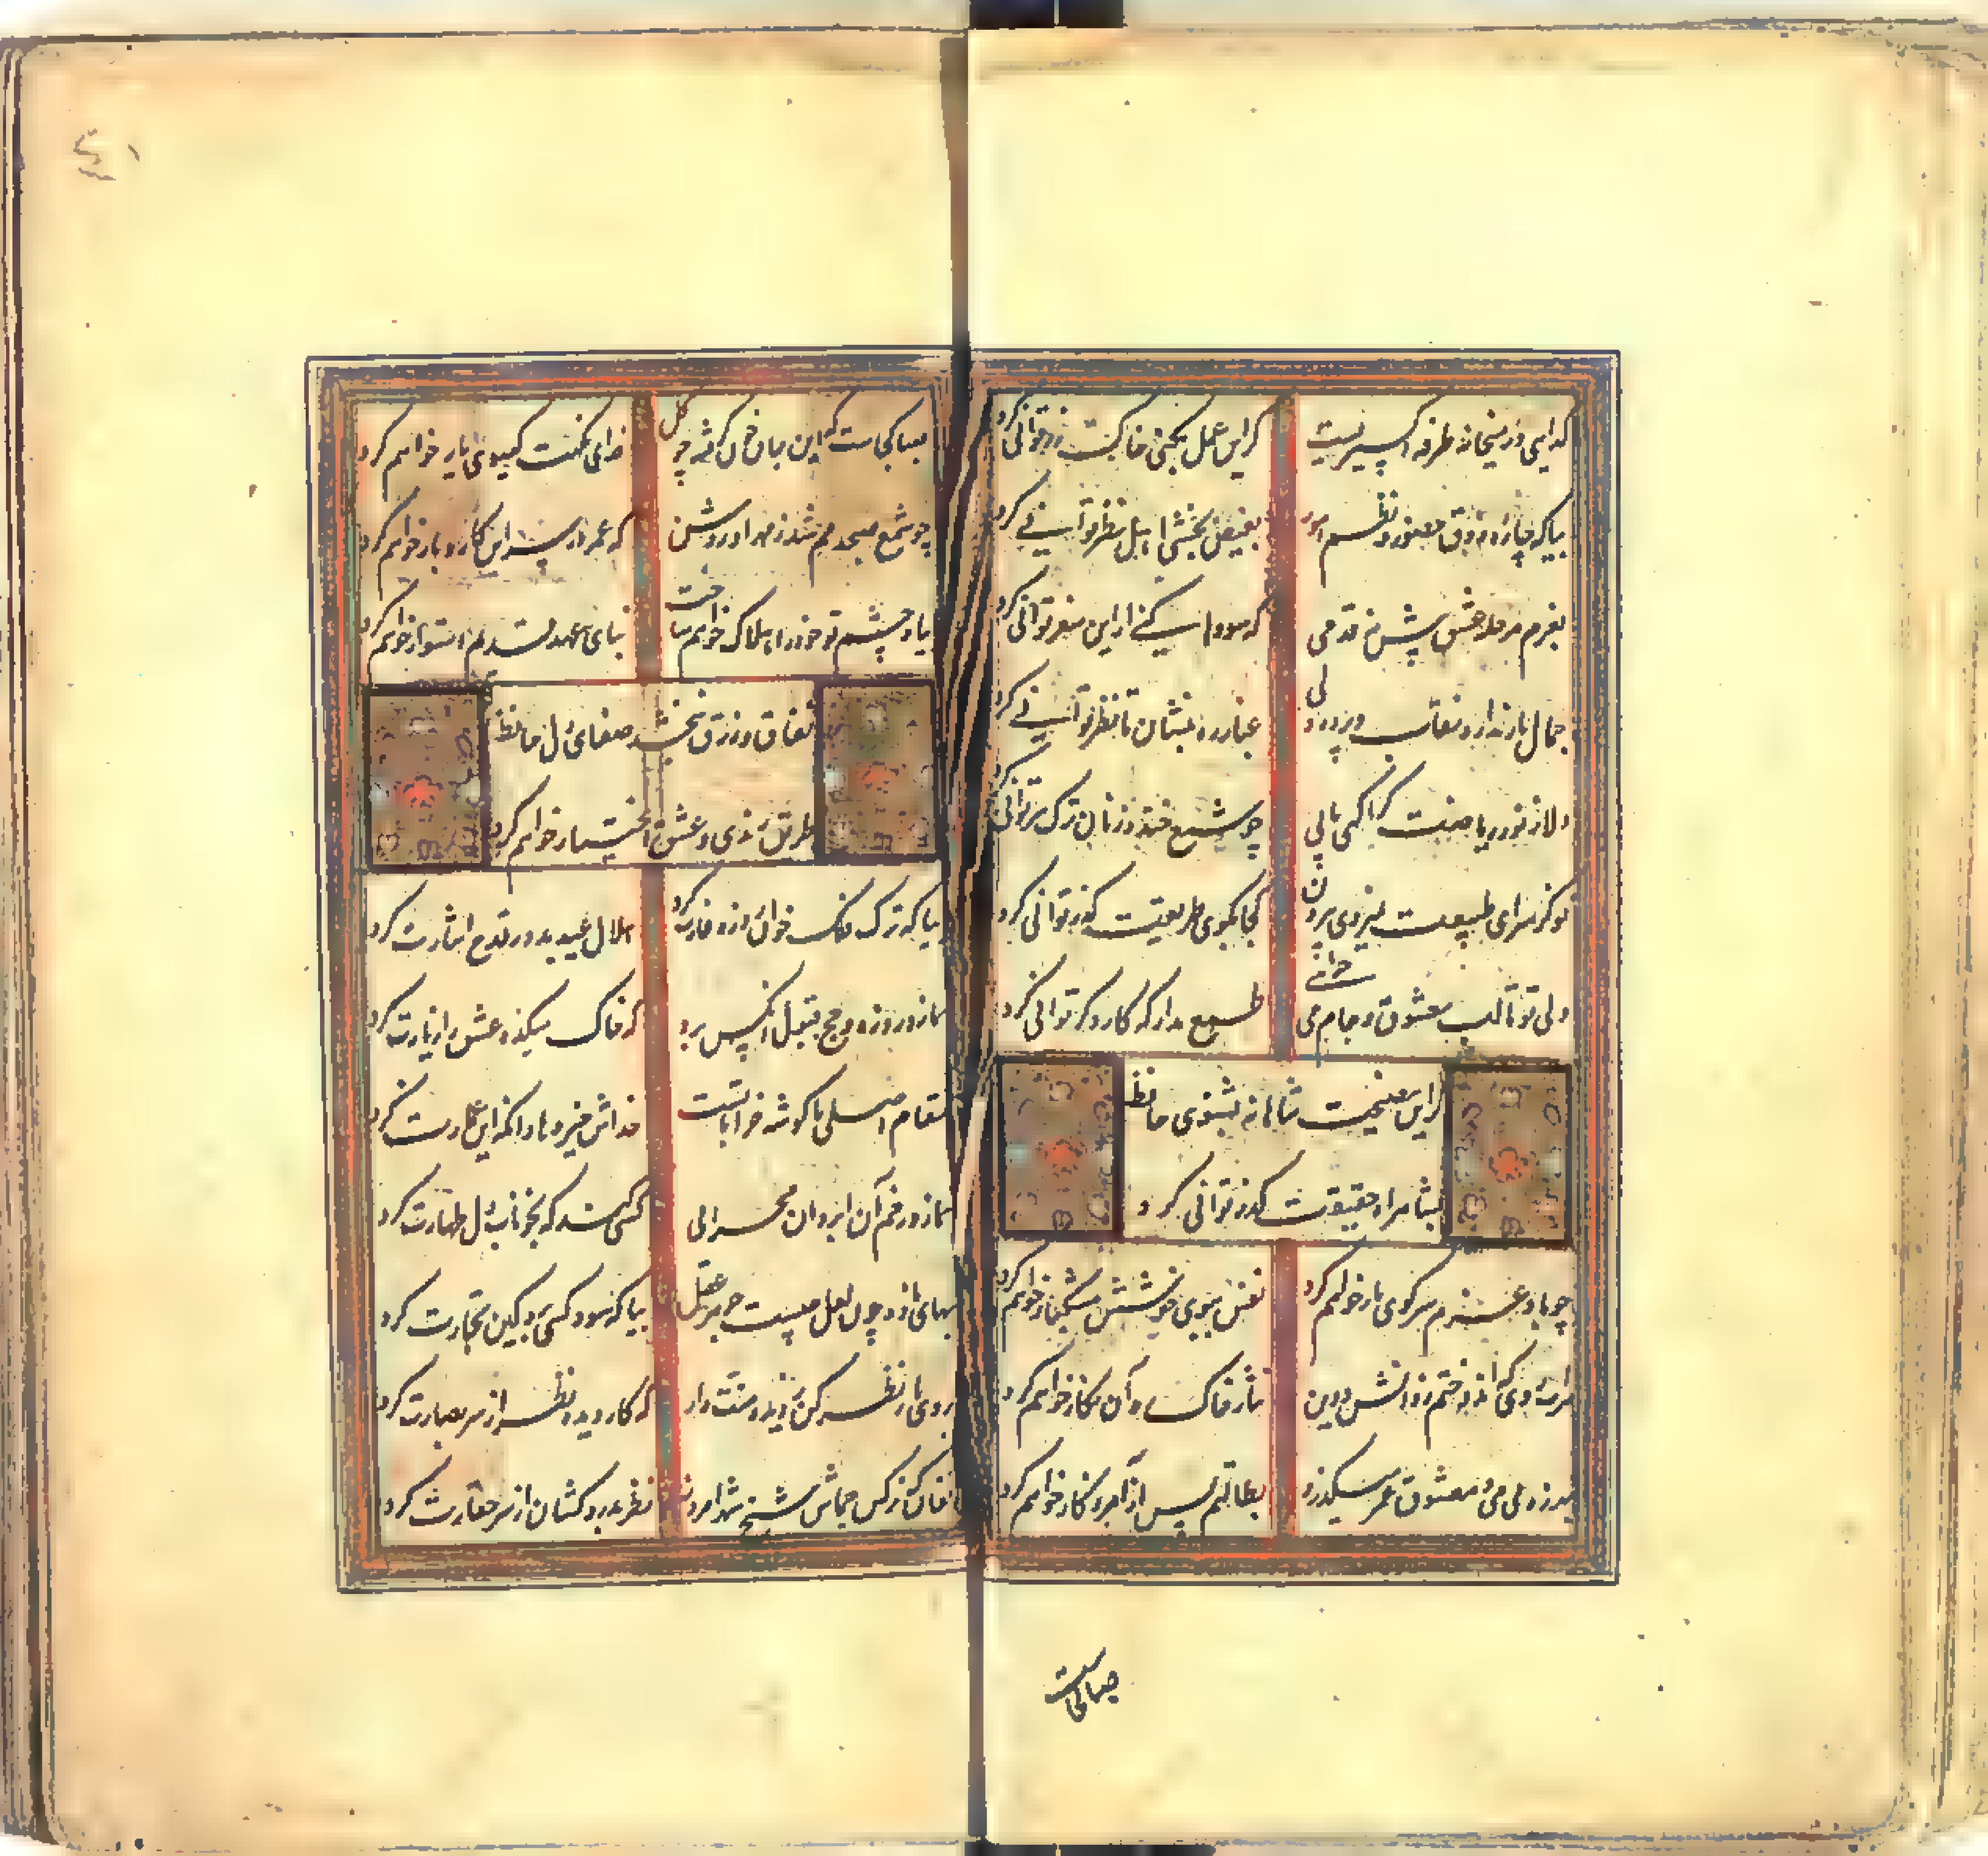 گدایی در میخانه طرفه اکسیریست گر این عمل بکنی خاک زر توانی کرد
بیا که چاره ذوق حضور و نظم امور بفیض بخشی اهل نظر توانی کرد
بعزم مرحله عشق پیش نه قدمی که سودها کنی ار این سفر توانی کرد
جمال یار ندارد نقاب و پرده ولی غبار ره بنشان تا نظر توانی کرد
دلا ز نور ریاضت گر آگهی یابی چو شمع خنده زنان ترک سر توانی کرد
تو کز سرای طبیعت نمیروی برون کجا بکوی طریقت گذر توانی کرد
ولی تو تا لب معشوق و جام می خواهی طمع مدار که کار دگر توانی کرد
گر این نصیحت شاهانه بشنوی حافظ
بشاهراه حقیقت گذر توانی کرد
چو باد عزم سر کوی یار خواهم کرد نفس ببوی خوشش مشکبار خواهم کرد
هر آبروی که اندوختم ز دانش و دین نثار خاک ره آن نگار خواهم کرد
بهرزه بی می و معشوق عمر میگذرد بطالتم بس از امروز کار خواهم کرد
صبا کجاست
صبا کجاست که این جان خون گرفته چو گل فدای نکهت گیسوی یار خواهم کرد
چو شمع صبحدمم شد ز مهر او روشن که عمر در سر این کار و بار خواهم کرد
بیاد چشم تو خود را هلاک خواهم ساخت بنای عهد قدیم استوار خواهم کرد
نفاق و زرق نبخشد صفای دل حافظ
طریق رندی و عشق اختیار خواهم کرد
بیا که ترک فلک خوان روزه غارت کرد هلال عید بدور قدح اشارت کرد
نماز و روزه و حج قبول آنکس برد که خاک میکده عشق را زیارت کرد
مقام اصلی ما گوشه خراباتست خداش خیر دهاد آنکه این عمارت کرد
نماز در خم آن ابروان محرابی کسی کند که بخوناب دل طهارت کرد
بهای باده چون لعل چیست جوهر عقل بیا که سود کسی برد کین تجارت کرد
بروی یار نظر کن ز دیده منت دار که کار دیده نظر از سر بصارت کرد
فغان که نرگس جماش شیخ شهر امروز نظر بدرد کشان از سر حقارت کرد